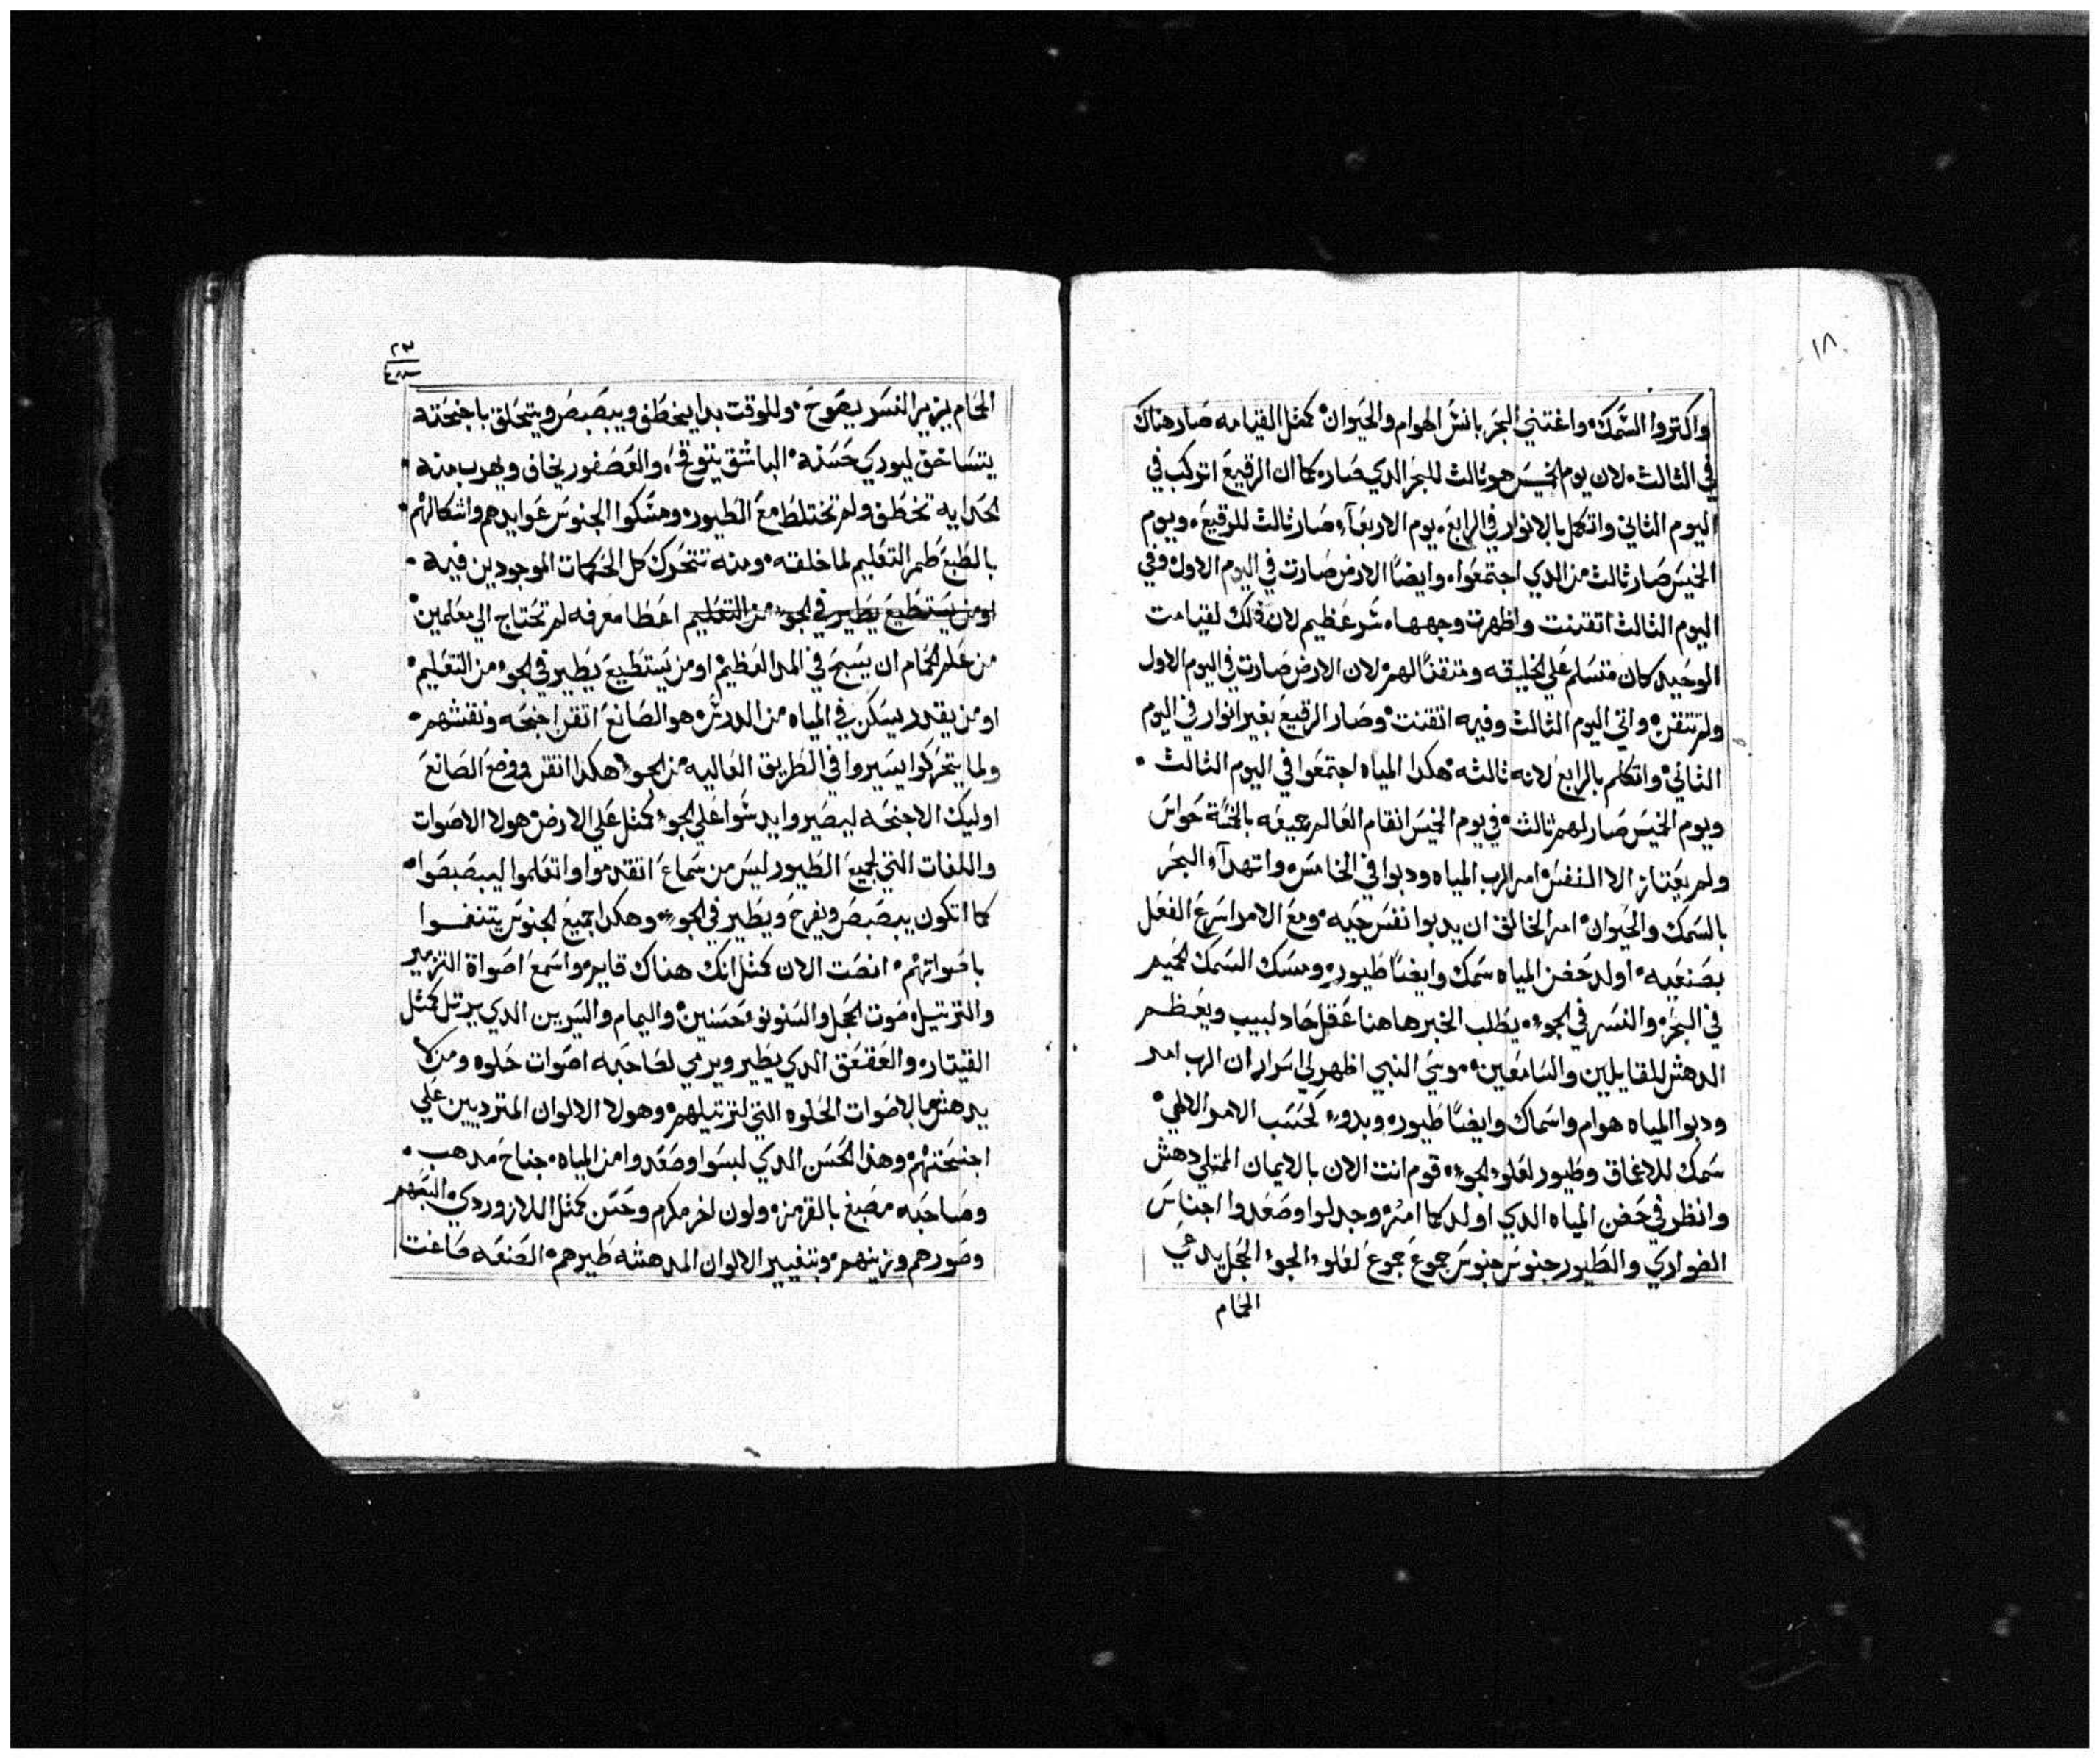 ١٨
واكتروا السَّمك° واغتني البحَر بانسَّ الهوام والحَيوان° كمثل القيامه صَار هناك
في الثالث° لان يوم الخميسَ هو ثالث للبحَر الدي صَار° كما ان الرقيعَ اتركب في
اليوم الثاني واتكمل بالانوار في الرابعَ° يوم الاربعَآء صَار ثالث للرقيعَ° ويوم
الخميسَ صَار ثالث من الدي اجتمعَوا° وايضاً الارض صَارت في اليوم الاول° وفي
اليوم الثالث اتقننت واظهرت وجهها° سَر عَظيم لان ذلك لقيامت
الوحَيد كان متسَلم عَلي الخليقه ومتقناً لهم° لان الارض صَارت في اليوم الاول
ولم تتقن° واتي اليوم الثالث وفيه اتقننت° وصَار الرقيعَ بغير انوار في اليوم
الثاني° واتكلم بالرابعَ لانه ثالثه° هكدا المياه اجتمعَوا في اليوم الثالث °
ويوم الخميسَ صَار لهم ثالث° في يوم الخميسَ انقام العَالم جميعَه بالخمسَة حَواسَ
ولم يعَتاز الا النفسَ° امر الرب المياه ودبوا في الخامسَ° واتهدآء البحَر
بالسَمك والحَيوان° امر الخالق ان يدبوا نفسَ حَيه° ومعَ الامر اسَرعَ الفعَل
بصَنعَيه° اولد حَضن المياه سَمك وايضاً طيور° ومسَك السَمك لحميم
في البحَر° والنسَر في الجوء° يطلب الخبر هاهنا عَقل حَاد لبيب ويعَظم
الدهش للقايلين والسَامعَين° موسَي النبي اظهر لي اسَرار ان الرب امر
ودبوا المياه هوام واسَماك وايضاً طيور° وبدوء لحَسَب الامر الالهي°
سَمك للاعَماق وطيور لعَلوء الجوء° قوم انت الان بالايمان الممتلي دهش
وانظر في حَضن المياه الدي اولد كما امر° وجدلوا وصَعَدوا اجناسَ
الضواري والطيور جنوسَ جنوسَ جموعَ جموعَ لعَلوء الجوء° الحَجل يدعَي
الحَمام

٢٣
الحَمام يزير النسَر يصَوح° وللوقت بدا يخطف ويبصَبصَ ويتحَلق باجنحَته
يتسَاحَق ليودي حَسَنه° الباشق يتوقحَ° والعَصَفور يخاف ويهرب منه °
الحَدايه تخطف ولم تختلط معَ الطيور° ومسَّكوا الجنوسَ عَوايدهم واشكالهم°
بالطبعَ طمر التعَليم لما خلقته° ومنه تتحَرك كل الحَكمات الموجودين فيه °
او من يسَتطيعَ يطير في الجوء من التعَليم اعَطا معَرفه لم تحَتاج الي معَلمين°
من عَلم الحَمام ان يسَبحَ في المدا العَظيم° او من يسَتطيعَ يطير في الجوء من التعَليم°
او من يقدر يسَكن في المياه من الدرسَ° هو الصَانعَ اتقن اجنحَه ونقشهم°
ولما يتحَركوا يسَيروا في الطريق العَاليه من الجوء° هكدا اتقن ووضعَ الصَانعَ
اوليك الاجنحَه ليصَيروا يدسَّوا عَلي الجوء° كمثل عَلي الارض° هولا الاصَوات
واللغات التي لجميعَ الطيور ليسَ من سَماعَ اتقدموا واتعَلموا ليبصَبصَوا°
كما اتكون يبصَبصَ ويفرحَ ويطير في الجوء° وهكدا جميعَ الجنوسَ يتنغموا
باصَواتهم° انصَت الان كمثل انك هناك قايم° واسَمعَ اصَواة التزمير
والترتيل° صَوت الحَجل والسَنونو حَسَنين° واليمام والسَرين الدي يرتل كمثل
القيتار° والعَقعَق الدي يطير ويرمي لصَاحَبه اصَوات حَلوه ومن لا
يدهش بالاصَوات الحَلوه التي لترتيلهم° وهولا الالوان المترديين عَلي
اجنحَتهم° وهذا الحَسَن الدي لبسَوا وصَعَدوا من المياه° جناحَ مدهب °
وصَاحَبه مصَبغ بالقرمز° ولون اخر مكرم وحَسَن كمثل اللازوردي°
وصَورهم وزينهم° وبتغيير الالوان المدهشه طيرهم° الصَنعَه صَاغت